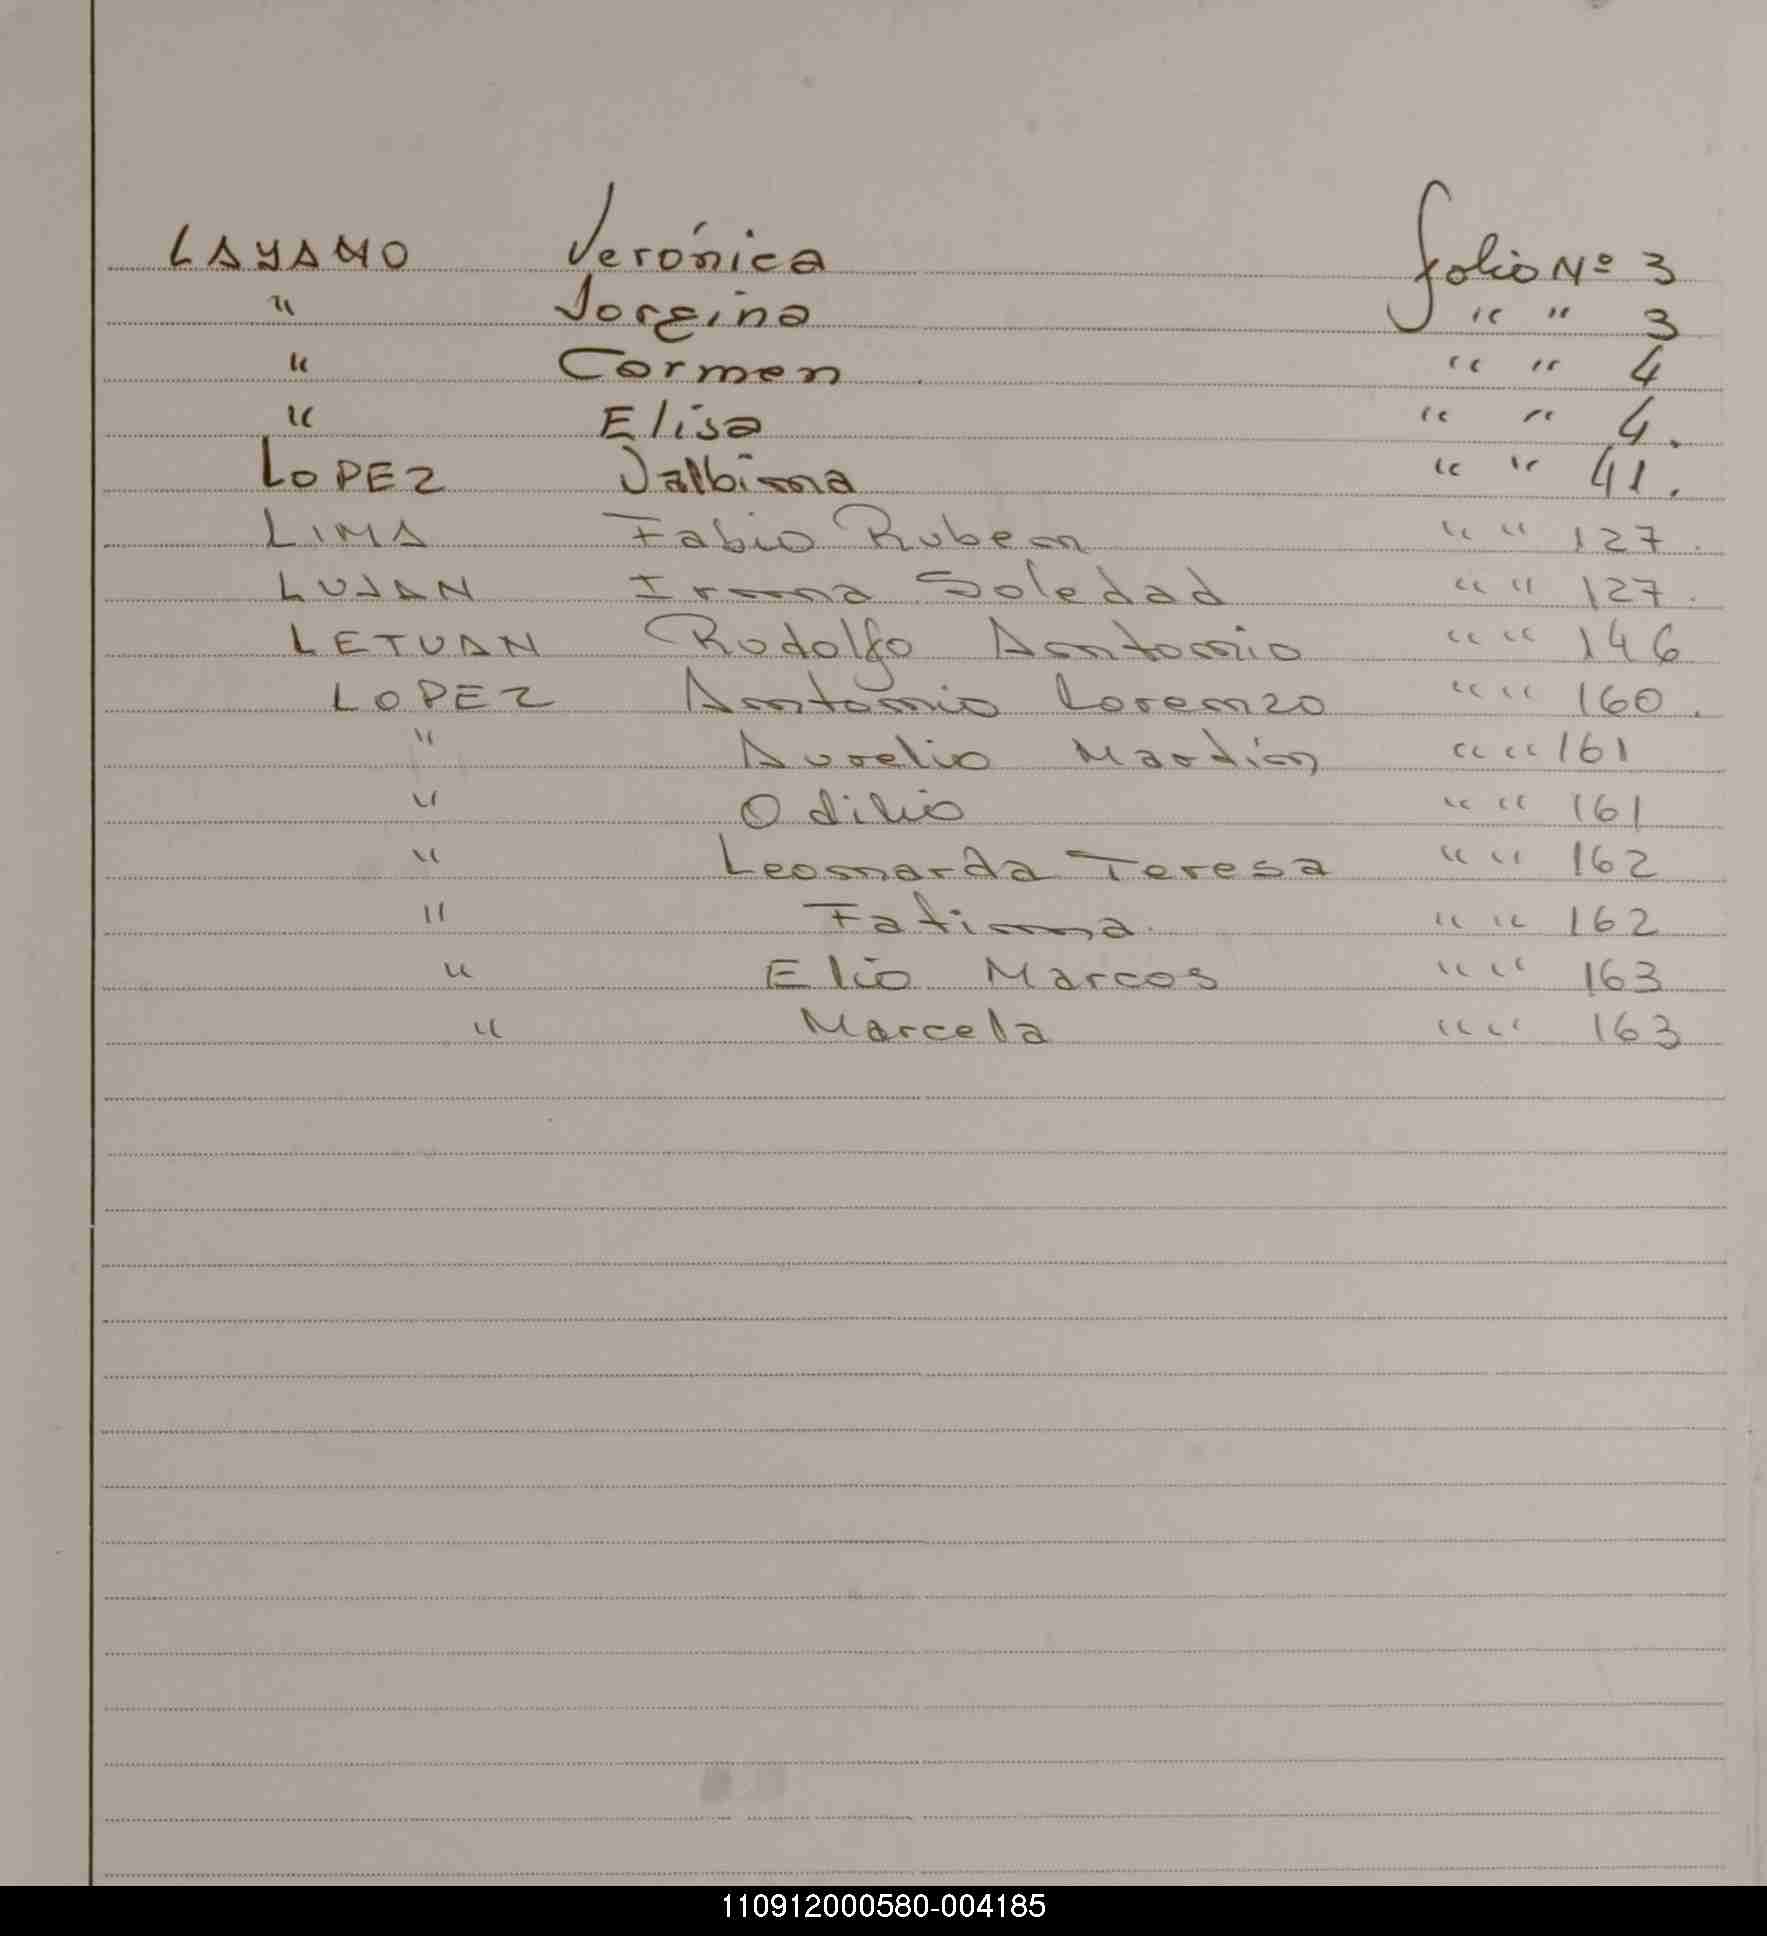 LAYANO Verónica folio Nº 3
" Jorgina " " 3
" Carmen " " 4
" Elisa " " 4.
LOPEZ Jalbina " " 41.
LIMA Fabio Ruben " " 127.
LUJAN Irma Soledad " " 127.
LETUAN Rodolfo Antonio " " 146
LOPEZ Antonio Lorenzo " " 160.
" Aurelio Mardín " " 161
" Odilio " " 161
" Leonarda Teresa " " 162
" Fatima " " 162
" Elio Marcos " " 163
" Marcela " " 163
110912000580-004185